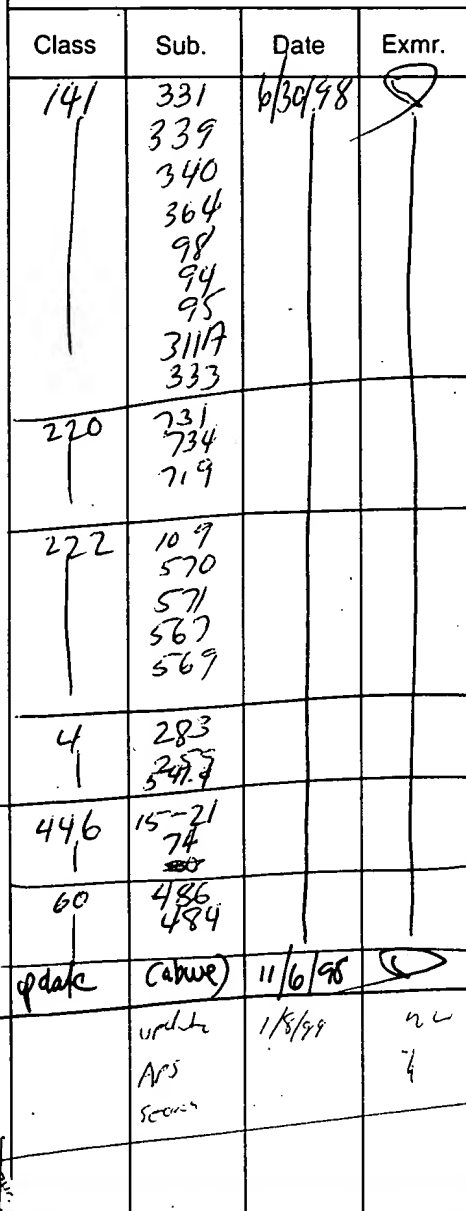 Class Sub. Date Exmr.
141 331 6/30/98
339
340
364
98
94
95
311A
333
220 731
734
719
222 109
570
571
567
569
4 283
446 15-21
74
60 486
484
update (above) 11/6/98
update 1/8/99
APS
search